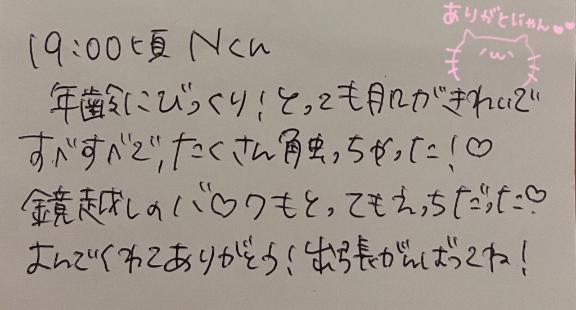 ありがとにゃん♥♥
19:00頃 Nくん
年齢にびっくり!とっても肌がきれいで
すべすべで、たくさん触っちゃった!♡
鏡越しのバ♡クもとってもえっちだった♡
よんでくれてありがとう!出張がんばってね!